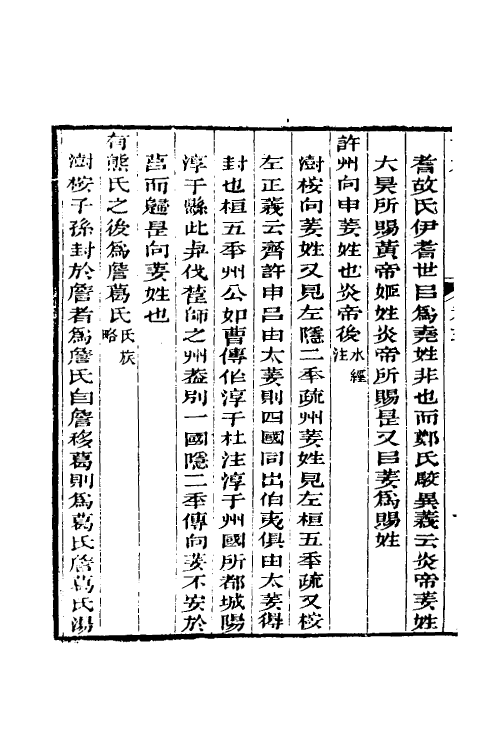 耆故氏伊耆世㠯爲堯姓非也而鄭氏駁異義云炎帝姜姓
大昊所賜黃帝姬姓炎帝所賜是又㠯姜爲賜姓
許州向申姜姓也炎帝後水經注
澍桉向姜姓又見左隱二秊疏州姜姓見左桓五秊疏又桉
左正義云齊許申呂由太姜則四國同出伯夷俱由太姜得
封也桓五秊州公如曹傳作淳于杜注淳于州國所都城陽
淳于縣此與伐楚師之州葢別一國隱二秊傳向姜不安於
莒而歸是向姜姓也
有熊氏之後爲詹葛氏氏族略
澍桉子孫封於詹者爲詹氏自詹移葛則爲葛氏詹葛氏湯